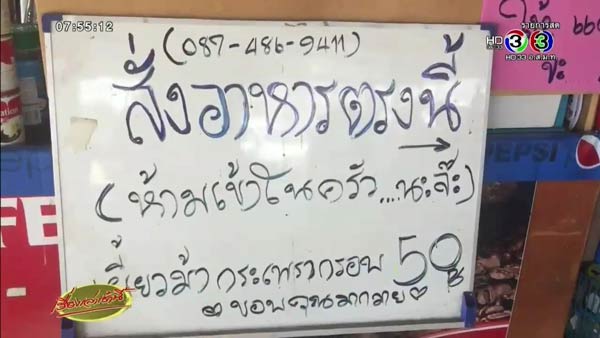 07:55:12
รายการสด
HD 33
HD 33 อ.ส.ม.ท
ให้
(087-486-9411)
สั่งอาหารตรงนี้
PEPSI
(ห้ามเข้าในครัว....นะจ๊ะ)
เกี๊ยวม้า กระเพรากรอบ 50
ขอบคุณมากมาย
เรื่องเล่าเช้านี้